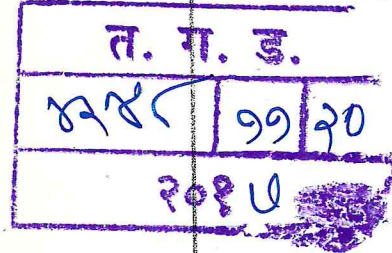 त. ग. ड.
४२४८ ११ २०
२०१५